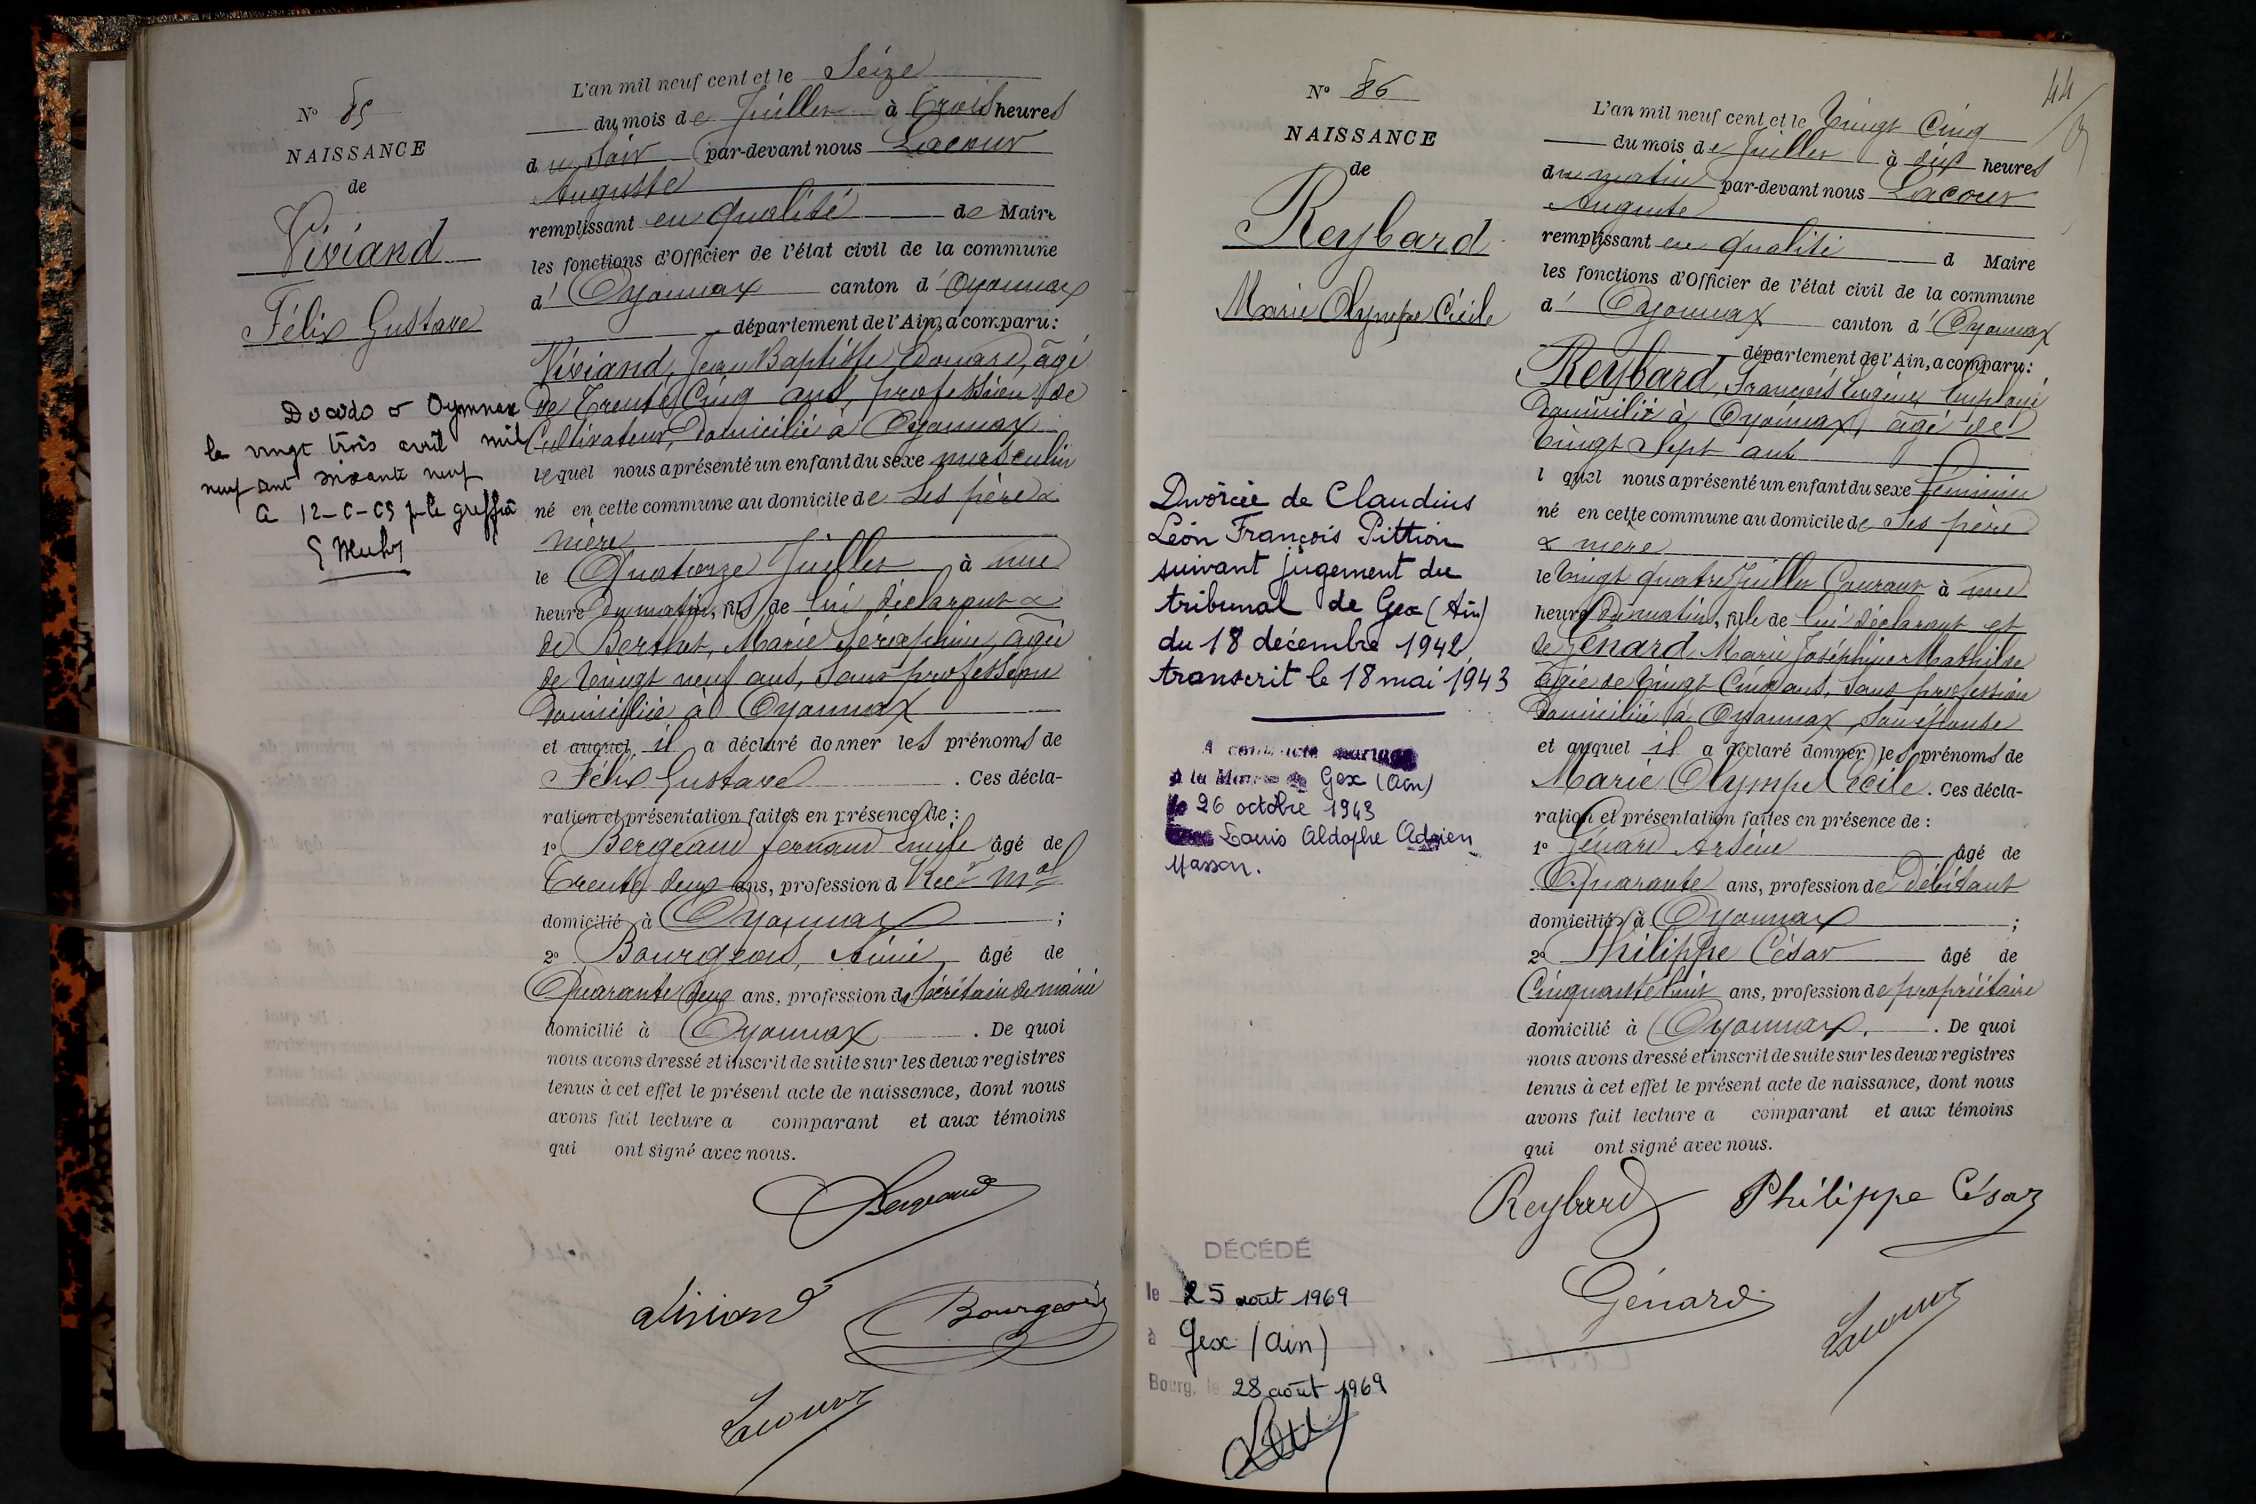 N° 85
NAISSANCE
de
Viviand
Félix Gustave
Décédé à Oyonnax
le vingt trois avril mil
neuf cent soixante neuf
A 12-5-69 p le greffier
L'an mil neuf cent et le Seize
du mois de Juillet à Trois heures
du Soir par-devant nous Lacour
Auguste
remplissant en qualité de Maire
les fonctions d'Officier de l'état civil de la commune
d' Oyonnax canton d' Oyonnax
département de l'Ain, a comparu:
Viviand, Jean Baptiste Edouard, âgé
de Trente Cinq ans, profession de
Cultivateur, domicilié à Oyonnax
lequel nous a présenté un enfant du sexe masculin
né en cette commune au domicile de Ses père &
mère
le Quatorze Juillet à une
heure du matin, fils de lui déclarant &
de Berthet, Marie Séraphine, âgée
de Vingt neuf ans, Sans profession
domiciliée à Oyonnax
et auquel il a déclaré donner les prénoms de
Félix Gustave. Ces décla-
ration et présentation faites en présence de :
1° Bergeaud Fernand Emile âgé de
Trente deux ans, profession d Recr Mal
domicilié à Oyonnax ;
2° Bourgeois, Aimé âgé de
Quarante deux ans, profession de Secrétaire de mairie
domicilié à Oyonnax. De quoi
nous avons dressé et inscrit de suite sur les deux registres
tenus à cet effet le présent acte de naissance, dont nous
avons fait lecture a comparant et aux témoins
qui ont signé avec nous.
Bergeaud
Viviand
Bourgeois
Lacour
44
N° 86
NAISSANCE
de
Reybard
Marie Olympe Cécile
Divorcée de Claudius
Léon François Pittion
suivant jugement du
tribunal de Gex (Ain)
du 18 décembre 1942
transcrit le 18 mai 1943
A contracté mariage
à la Mairie de Gex (Ain)
le 26 octobre 1943
Louis Aldophe Adrien
Masson.
DÉCÉDÉ
le 25 août 1969
à Gex (Ain)
Bourg, le 28 août 1969
L'an mil neuf cent et le Vingt Cinq
du mois de Juillet à dix heures
du matin par-devant nous Lacour
Auguste
remplissant en qualité d Maire
les fonctions d'Officier de l'état civil de la commune
d' Oyonnax canton d' Oyonnax
département de l'Ain, a comparu:
Reybard, François Eugène Employé
domicilié à Oyonnax, âgé de
Vingt Sept ans
l quel nous a présenté un enfant du sexe féminin
né en cette commune au domicile de Ses père
& mère
le Vingt quatre Juillet Courant à une
heure du matin, fille de lui déclarant et
de Génard Marie Joséphine Mathilde
âgée de Vingt Cinq ans, Sans profession
domiciliée à Oyonnax, Son épouse
et auquel il a déclaré donner les prénoms de
Marie Olympe Cécile. Ces décla-
ration et présentation faites en présence de :
1° Génard Arsène âgé de
Quarante ans, profession de débitant
domicilié à Oyonnax ;
2° Philippe César âgé de
Cinquante huit ans, profession de propriétaire
domicilié à Oyonnax. De quoi
nous avons dressé et inscrit de suite sur les deux registres
tenus à cet effet le présent acte de naissance, dont nous
avons fait lecture a comparant et aux témoins
qui ont signé avec nous.
Reybard Philippe César
Génard
Lacour